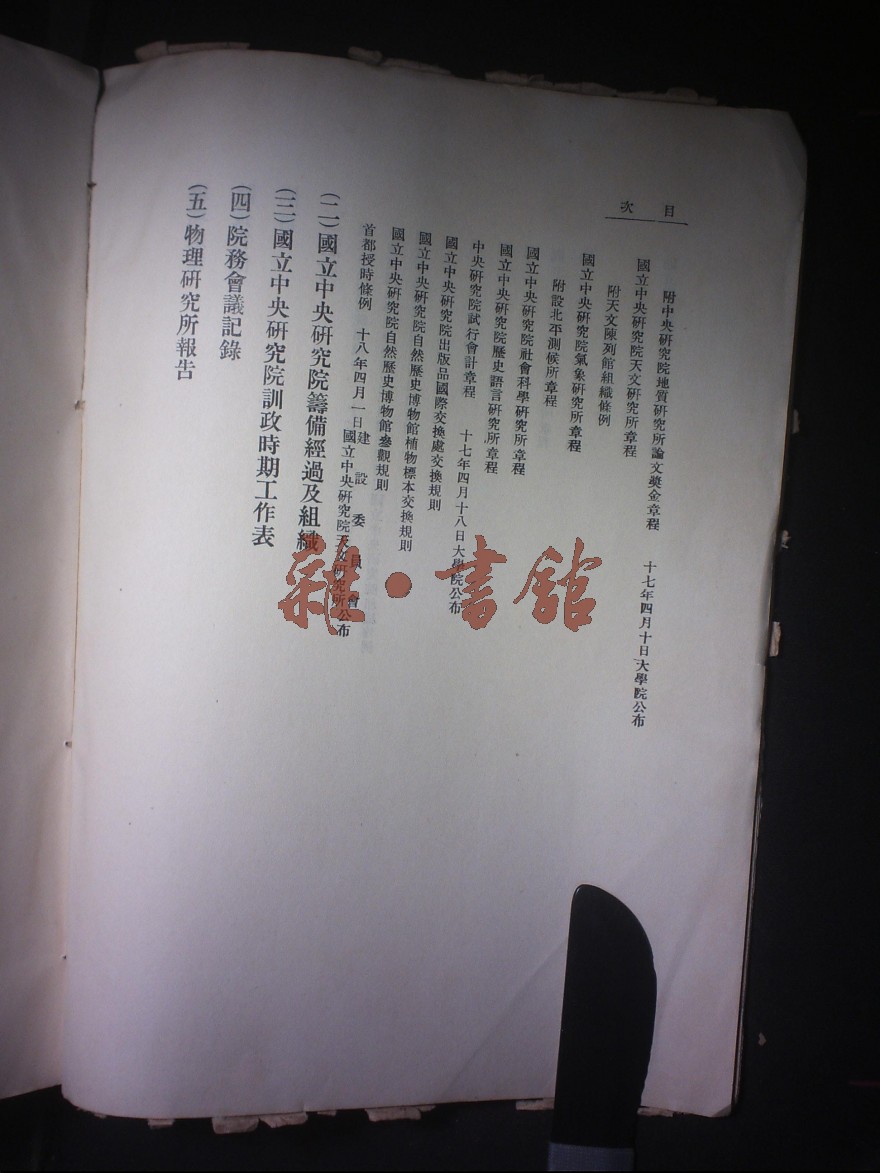 目次
附中央研究院地質研究所論文獎金章程　十七年四月十日大學院公布
國立中央研究院天文研究所章程
附天文陳列館組織條例
國立中央研究院氣象研究所章程
附設北平測候所章程
國立中央研究院社會科學研究所章程
國立中央研究院歷史語言研究所章程
中央研究院試行會計章程　十七年四月十八日大學院公布
國立中央研究院出版品國際交換處交換規則
國立中央研究院自然歷史博物館植物標本交換規則
國立中央研究院自然歷史博物館參觀規則
首都授時條例　十八年四月一日建設委員會
國立中央研究院天文研究所公布
(二)國立中央研究院籌備經過及組織
(三)國立中央研究院訓政時期工作表
(四)院務會議記錄
(五)物理研究所報告
雜·書館